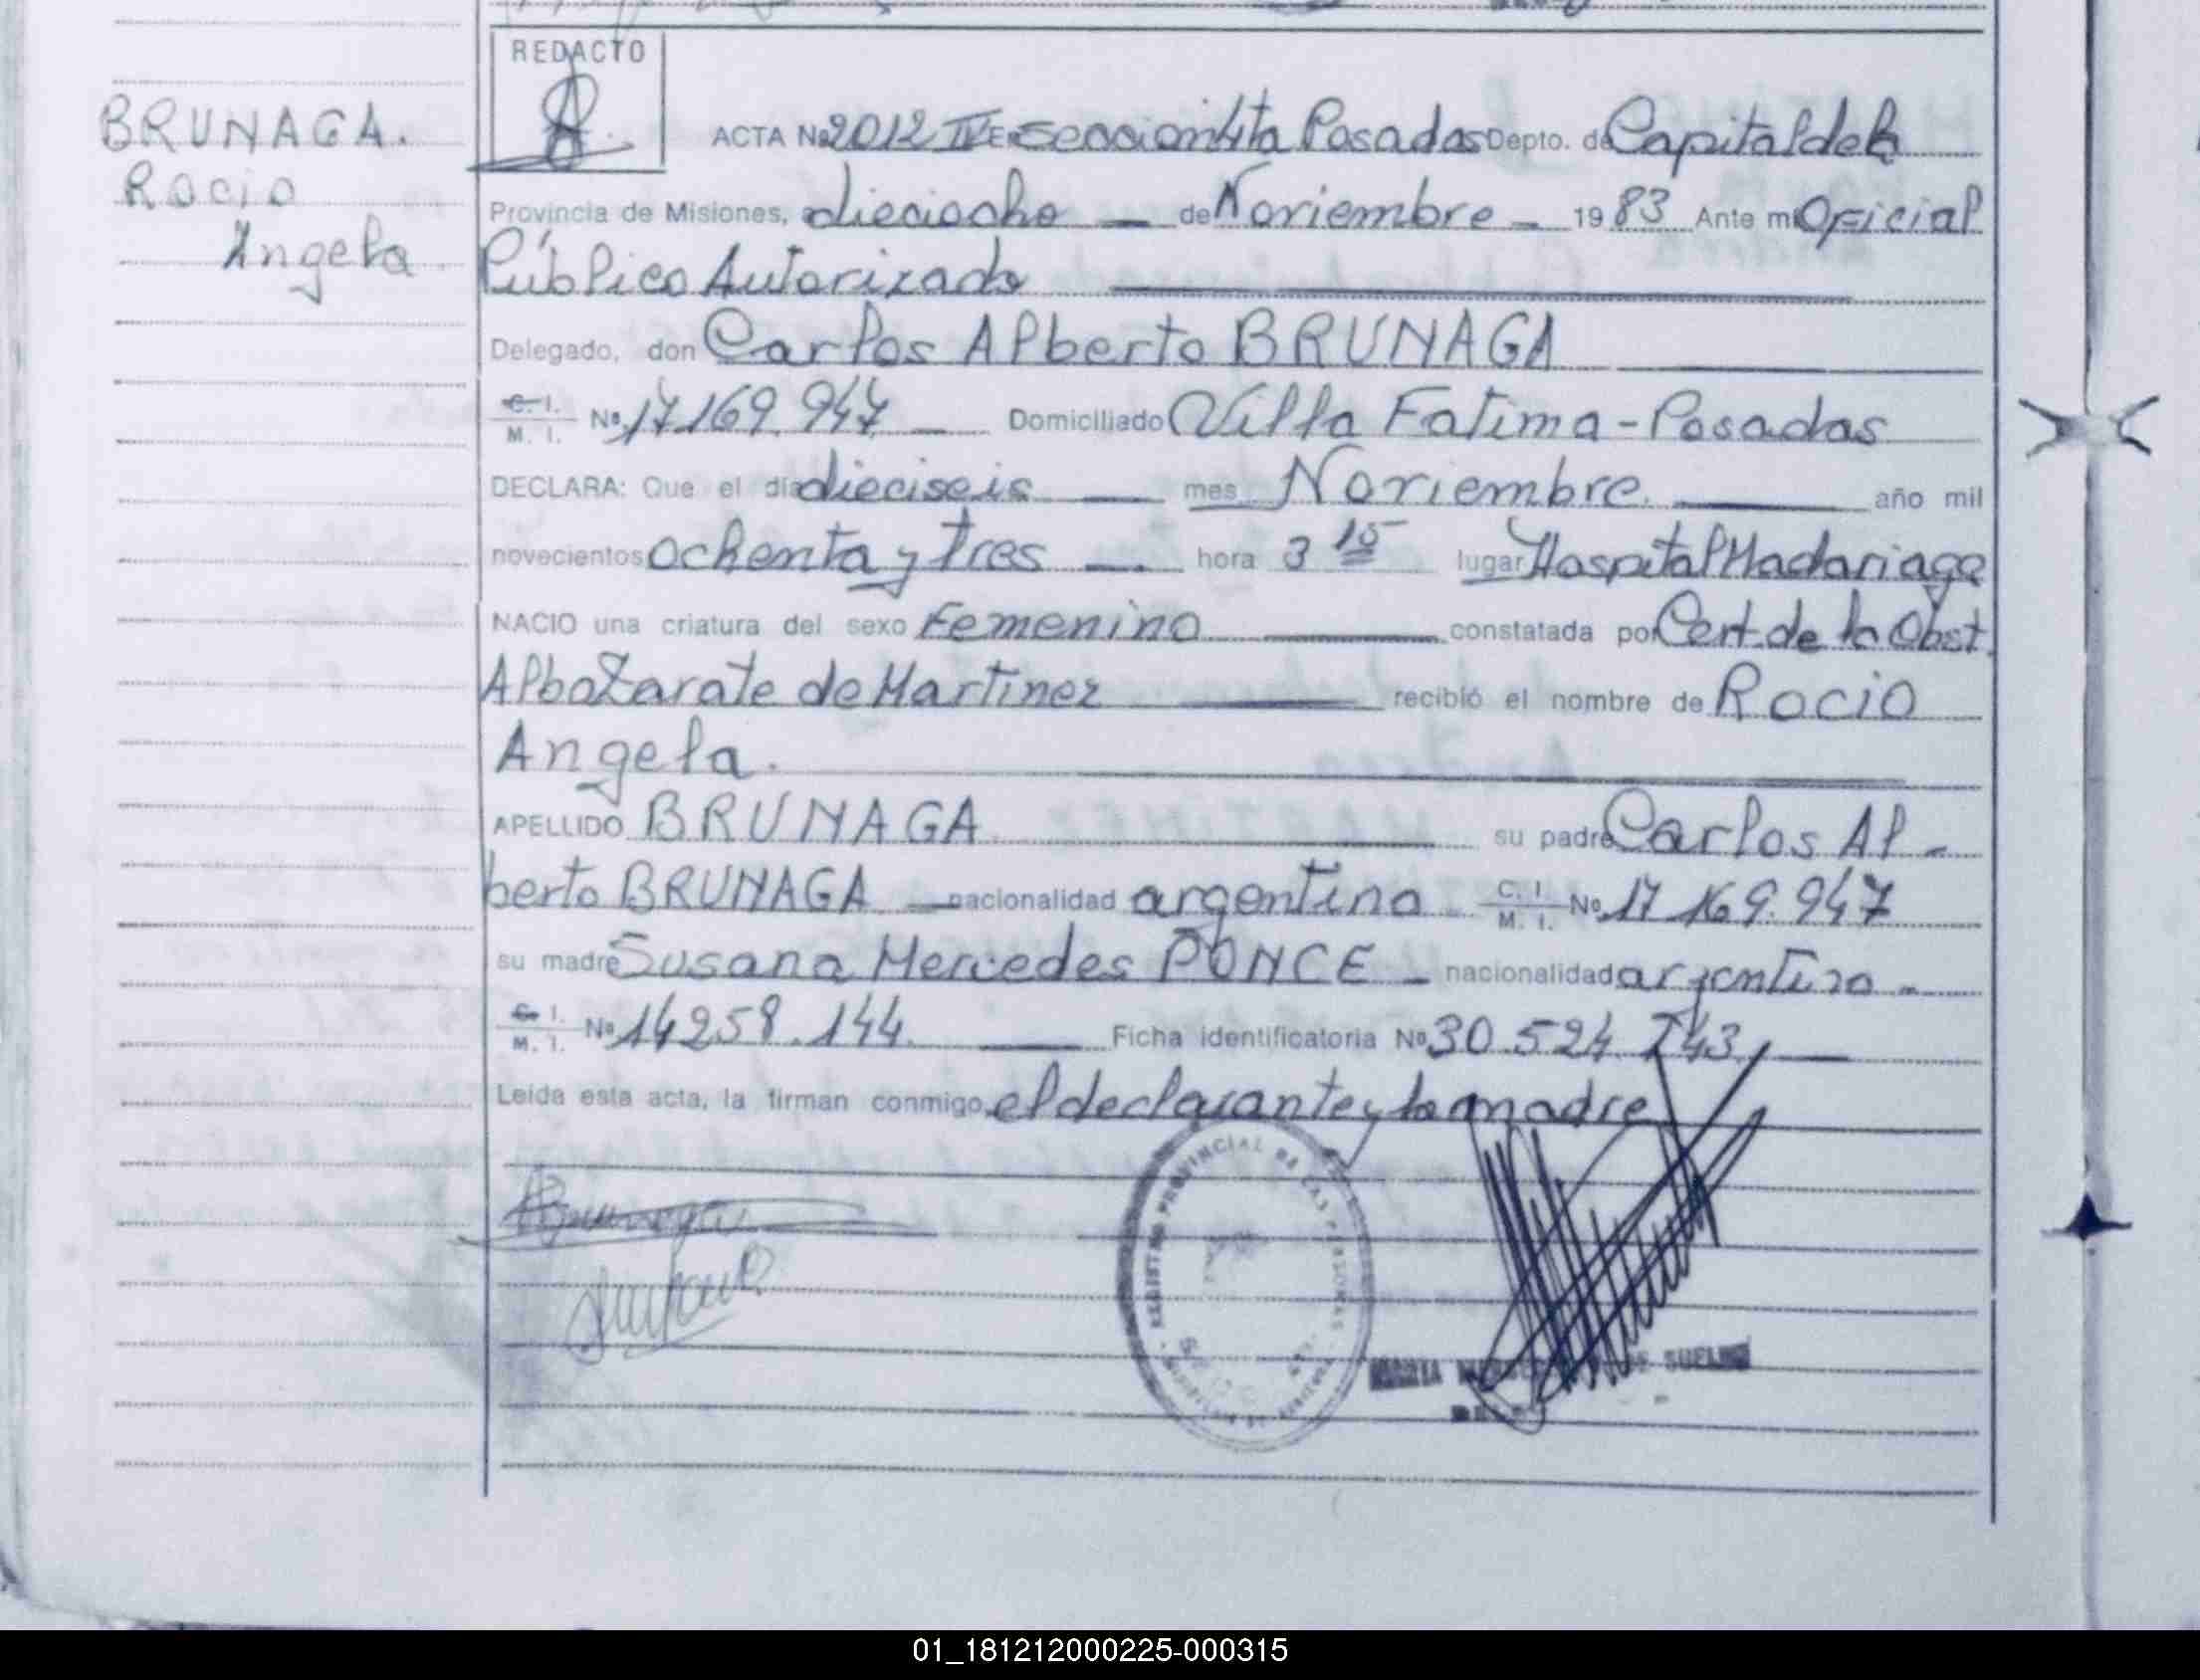 REDACTO
BRUNAGA.
Rocio
Angela.
ACTA Nº 2012 IV En Sección 4ta Posadas Depto. de Capital de la
Provincia de Misiones, a dieciocho — de Noviembre — 1983 Ante mi Oficial
Público Autorizado
Delegado, don Carlos Alberto BRUNAGA
C. I. M. I. Nº 17.169.947 — Domiciliado Villa Fatima - Posadas
DECLARA: Que el día dieciseis — mes Noviembre. — año mil
novecientos ochenta y tres — hora 3 15 lugar Hospital Madariaga
NACIO una criatura del sexo Femenino — constatada por Cert. de la Obst.
Alba Zarate de Martinez — recibió el nombre de Rocio
Angela.
APELLIDO BRUNAGA su padre Carlos Al-
berto BRUNAGA — nacionalidad argentina C. I. M. I. Nº 17.169.947
su madre Susana Mercedes PONCE — nacionalidad argentina -
C. I. M. I. Nº 14.258.144. — Ficha identificatoria Nº 30.524.743 —
Leída esta acta, la firman conmigo, el declarante y la madre
REGISTRO PROVINCIAL DE LAS PERSONAS
DE SUELDO
01_181212000225-000315